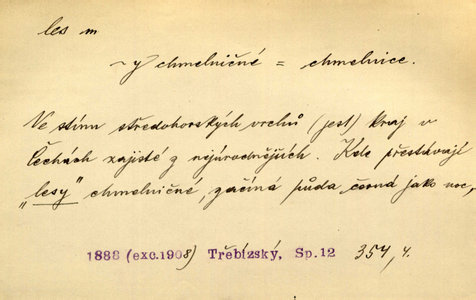 les m
~y chmelničné = chmelnice.
Ve stínu středohorských vrchů (jest) kraj v
Čechách zajisté z nejúrodnějších. Kde přestávají
„lesy" chmelničné, začíná půda černá jako noc,
1888 (exc. 1908) Třebízský, Sp. 12 354, 4.